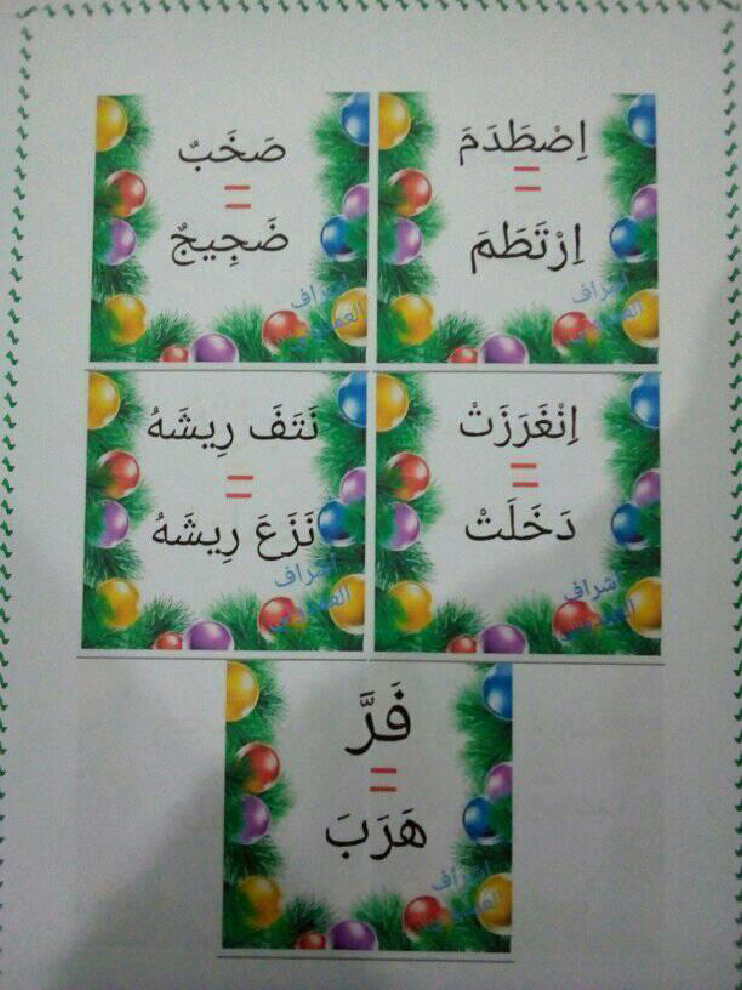 اِصْطَدَمَ
=
اِرْتَطَمَ
صَخَبٌ
=
ضَجِيجٌ
اِنْغَرَزَتْ
=
دَخَلَتْ
نَتَفَ رِيشَهُ
=
نَزَعَ رِيشَهُ
فَرَّ
=
هَرَبَ